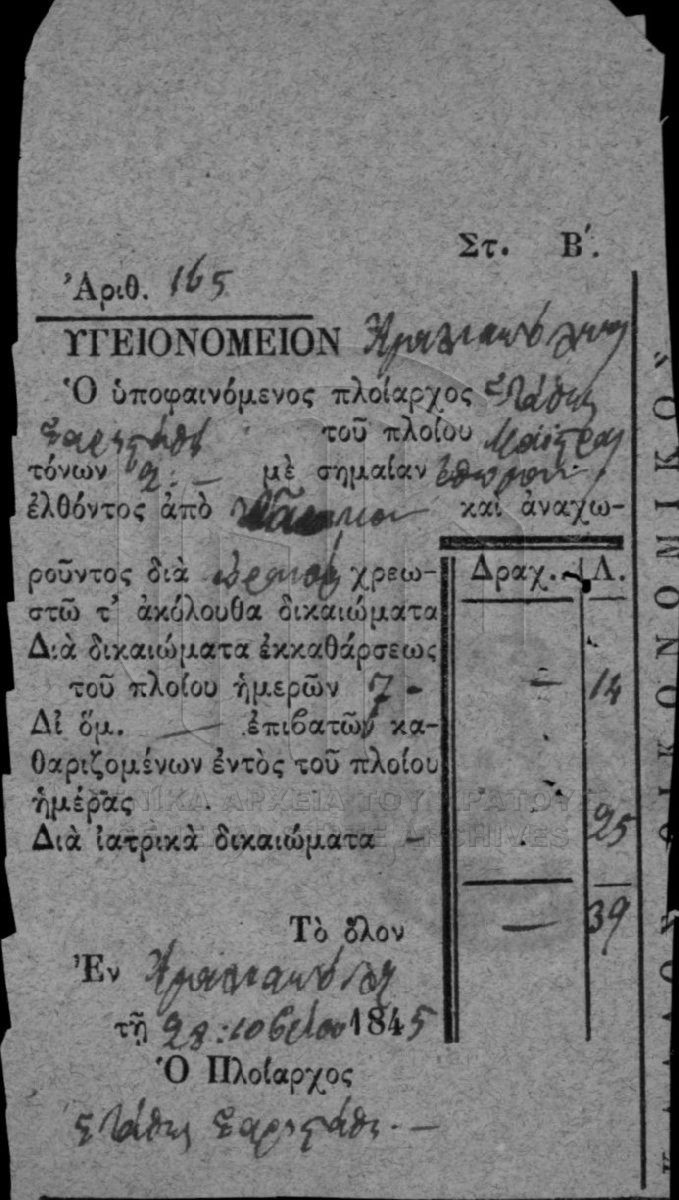 Στ. Β΄.
Ἀριθ. 165
ΥΓΕΙΟΝΟΜΕΙΟΝ Ἀμαλιαπόλεως
Ὁ ὑποφαινόμενος πλοίαρχος Στάθης
τοῦ πλοίου
τόνων 2 :— μὲ σημαίαν
ἐλθόντος ἀπὸ καὶ ἀναχω-
ροῦντος διὰ χρεω-
στῶ τ’ ἀκόλουθα δικαιώματα
Δραχ. Λ.
Διὰ δικαιώματα ἐκκαθάρσεως
τοῦ πλοίου ἡμερῶν 7 - — 14
Δἰ ὅμ. — ἐπιβατῶν κα-
θαριζομένων ἐντὸς τοῦ πλοίου
ἡμέρας
Διὰ ἰατρικὰ δικαιώματα — 25
Τὸ ὅλον — 39
Ἐν Ἀμαλιαπόλει
τῇ 28 : 10βρίου 1845
Ὁ Πλοίαρχος
Στάθης
ΟΙΚΟΝΟΜΙΚΟΥ
ΑΡΧΕΙΑ ΤΟΥ ΚΡΑΤΟΥΣ
ARCHIVES